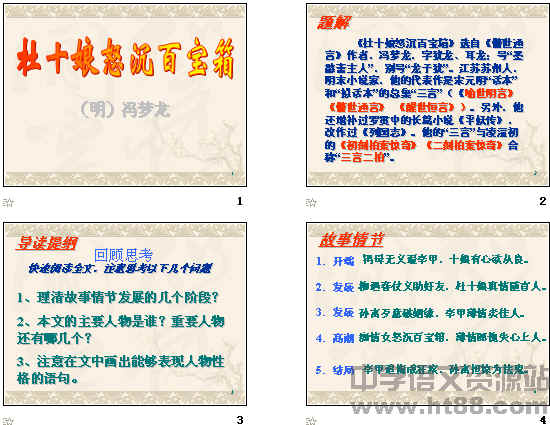 杜十娘怒沉百宝箱
（明）冯梦龙
1
题解
《杜十娘怒沉百宝箱》选自《警世通
言》作者，冯梦龙，字犹龙、耳龙；号“墨
憨斋主人”，别号“龙子犹”。江苏苏州人，
明末小说家，他的代表作是宋元明“话本”
和“拟话本”的总集“三言”（《喻世明言》
《警世通言》《醒世恒言》）。另外，他
还增补过罗贯中的长篇小说《平妖传》，
改作过《列国志》。他的“三言”与凌濛初
的《初刻拍案惊奇》《二刻拍案惊奇》合
称“三言二拍”。
2
导读提纲
回顾思考
快速阅读全文，注意思考以下几个问题
1、理清故事情节发展的几个阶段？
2、本文的主要人物是谁？重要人物
还有哪几个？
3、注意在文中画出能够表现人物性
格的语句。
3
故事情节
1．开端 鸨母无义逐李甲，十娘有心欲从良。
2．发展 柳遇春仗义助好友，杜十娘真情随官人。
3．发展 孙富歹意破姻缘，李甲薄情卖佳人。
4．高潮 痴情女怒沉百宝箱，薄情郎愧失心上人。
5．结局 李甲追悔成狂疾，孙富
中学语文资源站
www.ht88.com
4